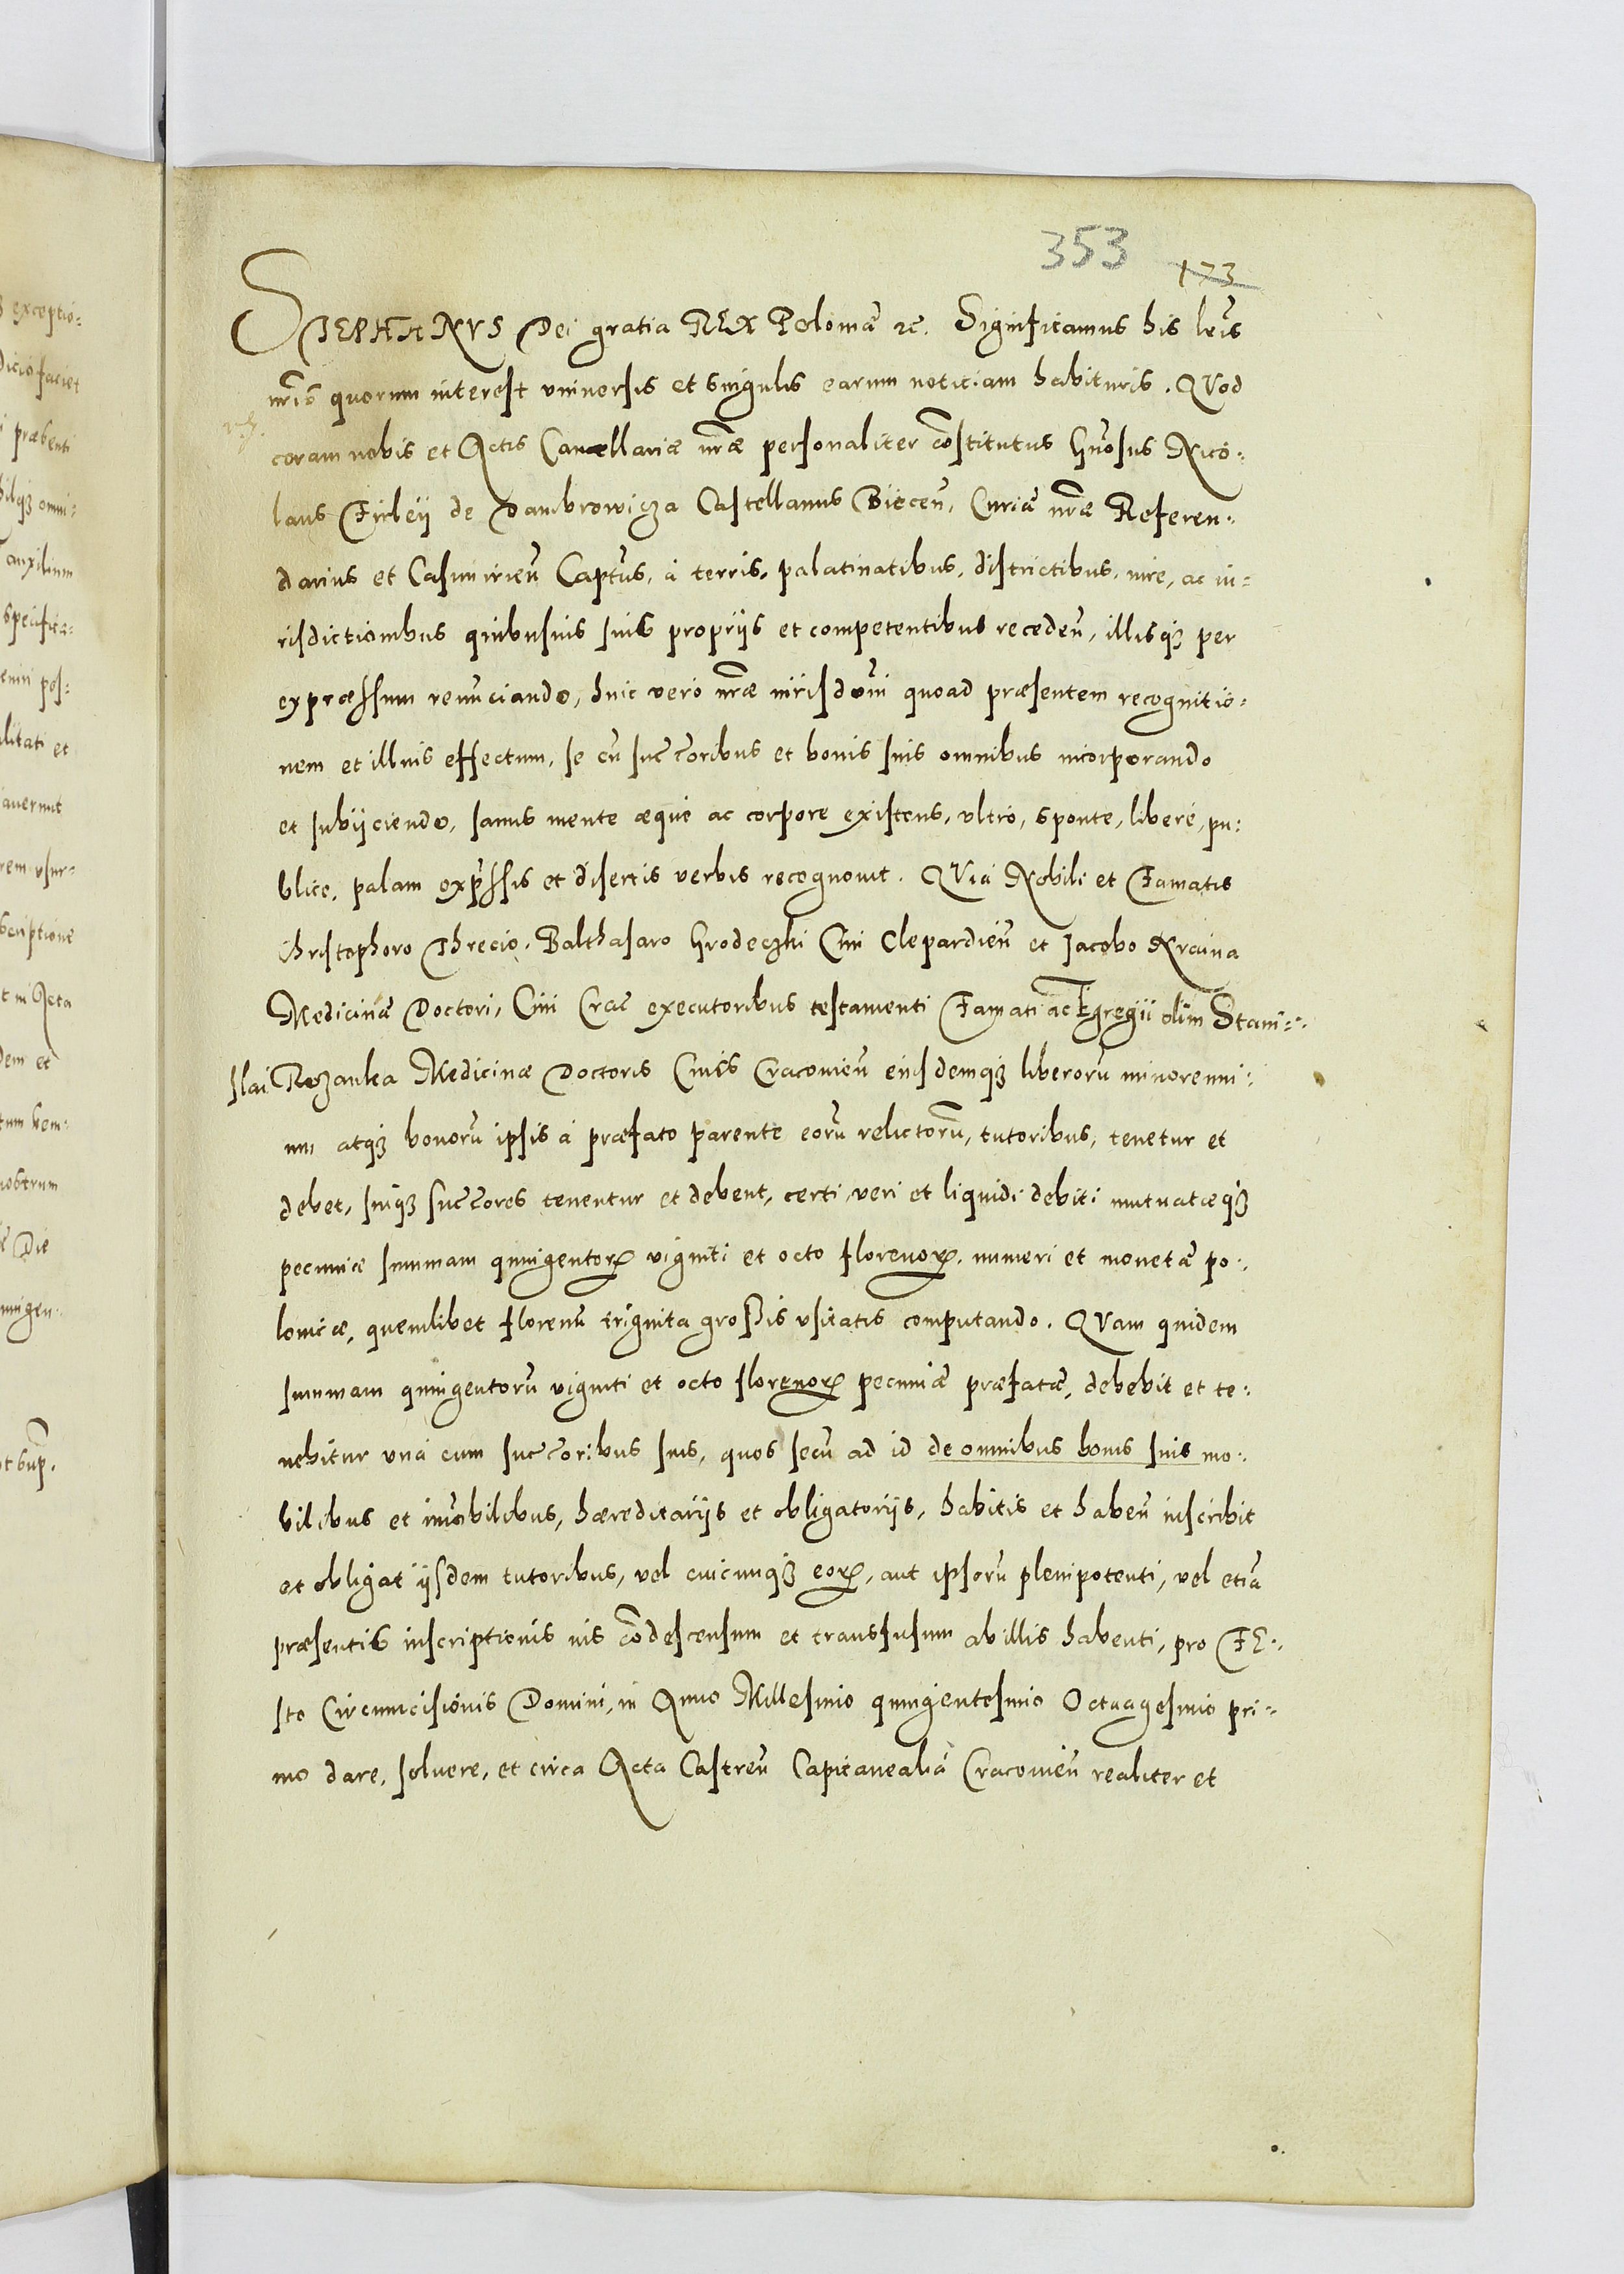 353
173
STEPHANVS Dei gratia REX Poloniæ ec. Significamus his lr̃is
nr̃is quorum interest vniuersis et singulis earum noticiam habituris. QVod
coram nobis et Actis Cancellariæ nr̃æ personaliter cõstitutus Gñosus Nico-
laus Firleÿ de Dambrowicza Castellanus Biecen̄, Curiæ nr̃æ Referen-
darius et Casimirien̄ Captus, à terris, palatinatibus, districtibus, iure, ac iu-
risdictionibus quibusuis suis proprijs et competentibus receden̄, illisq3 per
expræssum renunciando, huic vero nr̃æ iurisdoñi quoad præsentem recognitio-
nem et illius effectum, se cũ succ̃oribus et bonis suis omnibus incorporando
et subijciendo, sanus mente æque ac corpore existens, vltro, sponte, libere, pu-
blice, palam exp̃ssis et disertis verbis recognouit. QVia Nobili et Famatis
Christophoro Threcio, Balthasaro Grodeczki Ciui Clepardien̄ et Jacobo
Medicinæ Doctori, Ciui Crac̃ executoribus testamenti Famati ac Egregii olim Stani-
slai Rozanka Medicinæ Doctoris Ciuis Cracouien̄ eiusdemq3 liberorũ minorenni-
um atq3 bonorũ ipsis à præfato parente eorũ relictorũ, tutoribus, tenetur et
debet, suiq3 succ̃ores tenentur et debent, certi, veri et liquidi debiti mutuatæq3
pecuniæ summam quingentorꝝ viginti et octo florenorꝝ, numeri et monetæ po-
lonicæ, quemlibet florenũ triginta großis vsitatis computando. QVam quidem
summam quingentorũ viginti et octo florenorꝝ pecuniæ præfatæ, debebit et te-
nebitur vnà cum succ̃oribus suis, quos secũ ad id de omnibus bonis suis mo-
bilibus et im̃obilibus, hæreditarijs et obligatorijs, habitis et haben̄ inscribit
et obligat ijsdem tutoribus, vel cuicunq3 eorꝝ, aut ipsorũ plenipotenti, vel etiã
præsentis inscriptionis ius cõdescensum et transfusum ab illis habenti, pro FE-
sto Circumcisionis Domini, in Anno Millesimo quingentesimo Octuagesimo pri-
mo dare, soluere, et circa Acta Castren̄ Capitanealia Cracouien̄ realiter et